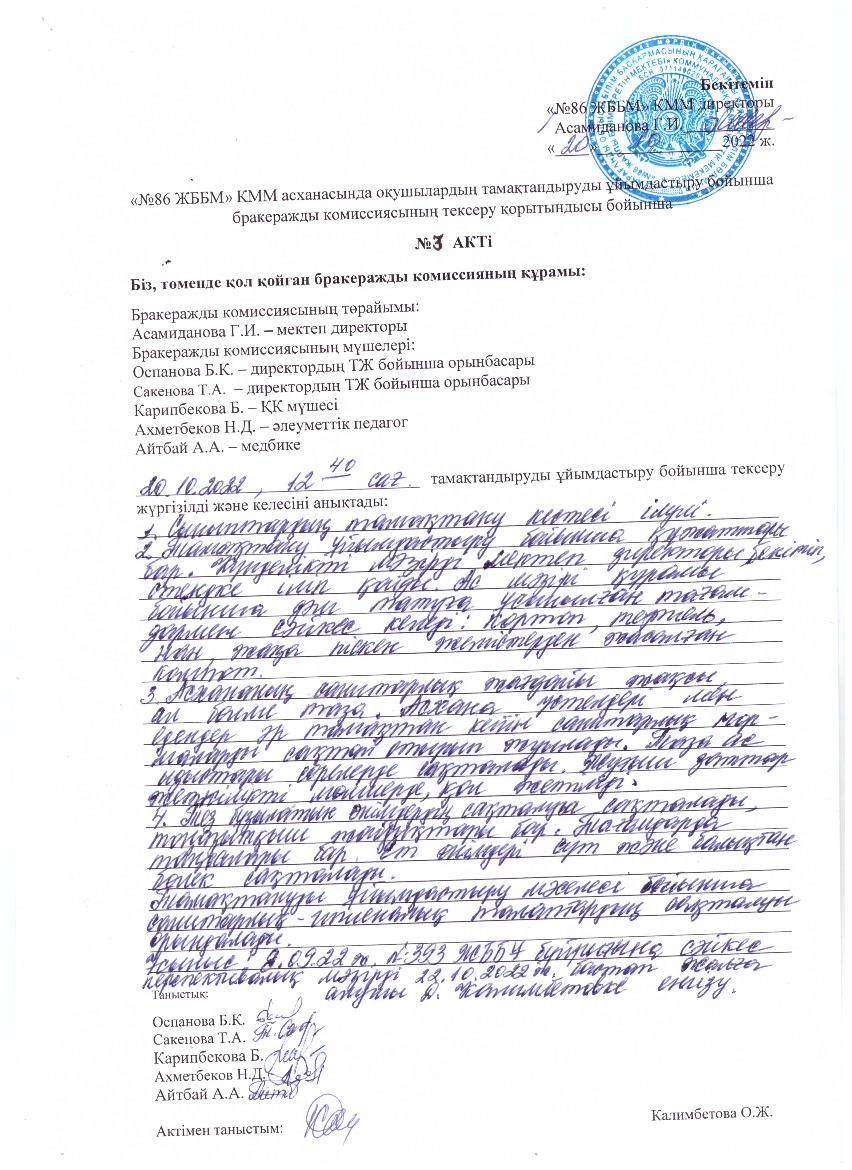 Бекітемін
«№86 ЖББМ» КММ директоры
Асамиданова Г.И.
« 20 » 10 2022 ж.
«№86 ЖББМ» КММ асханасында оқушылардың тамақтандыруды ұйымдастыру бойынша
бракеражды комиссиясының тексеру қорытындысы бойынша
№3 АКТі
Біз, төменде қол қойған бракеражды комиссияның құрамы:
Бракеражды комиссиясының төрайымы:
Асамиданова Г.И. – мектеп директоры
Бракеражды комиссиясының мүшелері:
Оспанова Б.К. – директордың ТЖ бойынша орынбасары
Сакенова Т.А. – директордың ТЖ бойынша орынбасары
Карипбекова Б. – ҚК мүшесі
Ахметбеков Н.Д. – әлеуметтік педагог
Айтбай А.А. – медбике
20.10.2022, 12 40 сағ. тамақтандыруды ұйымдастыру бойынша тексеру
жүргізілді және келесіні анықтады:
1. Сыныптардың тамақтану кестесі ілулі.
2. Тамақтану ұйымдастыру бойынша құжаттары
бар. Күнделікті мәзірді мектеп директоры бекітіп,
стендке іліп қояды. Ас мәзірі құрамы
бойынша дәм татуға ұсынылған тағам-
дармен сәйкес келеді: картоп, тефтель,
нан, жаңа піскен жемістерден жасалған
компот.
3. Асхананың санитарлық жағдайы жақсы,
ас бөлме таза. Асхана үстелдері мен
едендер әр тамақтан кейін санитарлық нор-
маларды сақтап отырып жуылады. Таза ас
ыдыстары сөрелерде сақталады. Жууш заттар
жеткілікті мөлшерде, қол жетімді.
4. Тез бұзылатын өнімдердің сақталуы сақталады,
тоңазытқыш жабдықтары бар. Тағамдарда
таңбалары бар. Ет өнімдері сүт және балықтан
бөлек сақталады.
Тамақтануды ұйымдастыру мәселесі бойынша
санитарлық-гигиеналық талаптардың сақталуы
орындалады.
Ұсыныс 2.09.22ж. №393 ЖББЧ бұйрығына сәйкес
перспективалық мәзірді 22.10.2022ж. бастап жалға
алушы О. Калимбетовке енгізу.
Таныстық:
Оспанова Б.К.
Сакенова Т.А.
Карипбекова Б.
Ахметбеков Н.Д.
Айтбай А.А.
Актімен таныстым:
Калимбетова О.Ж.